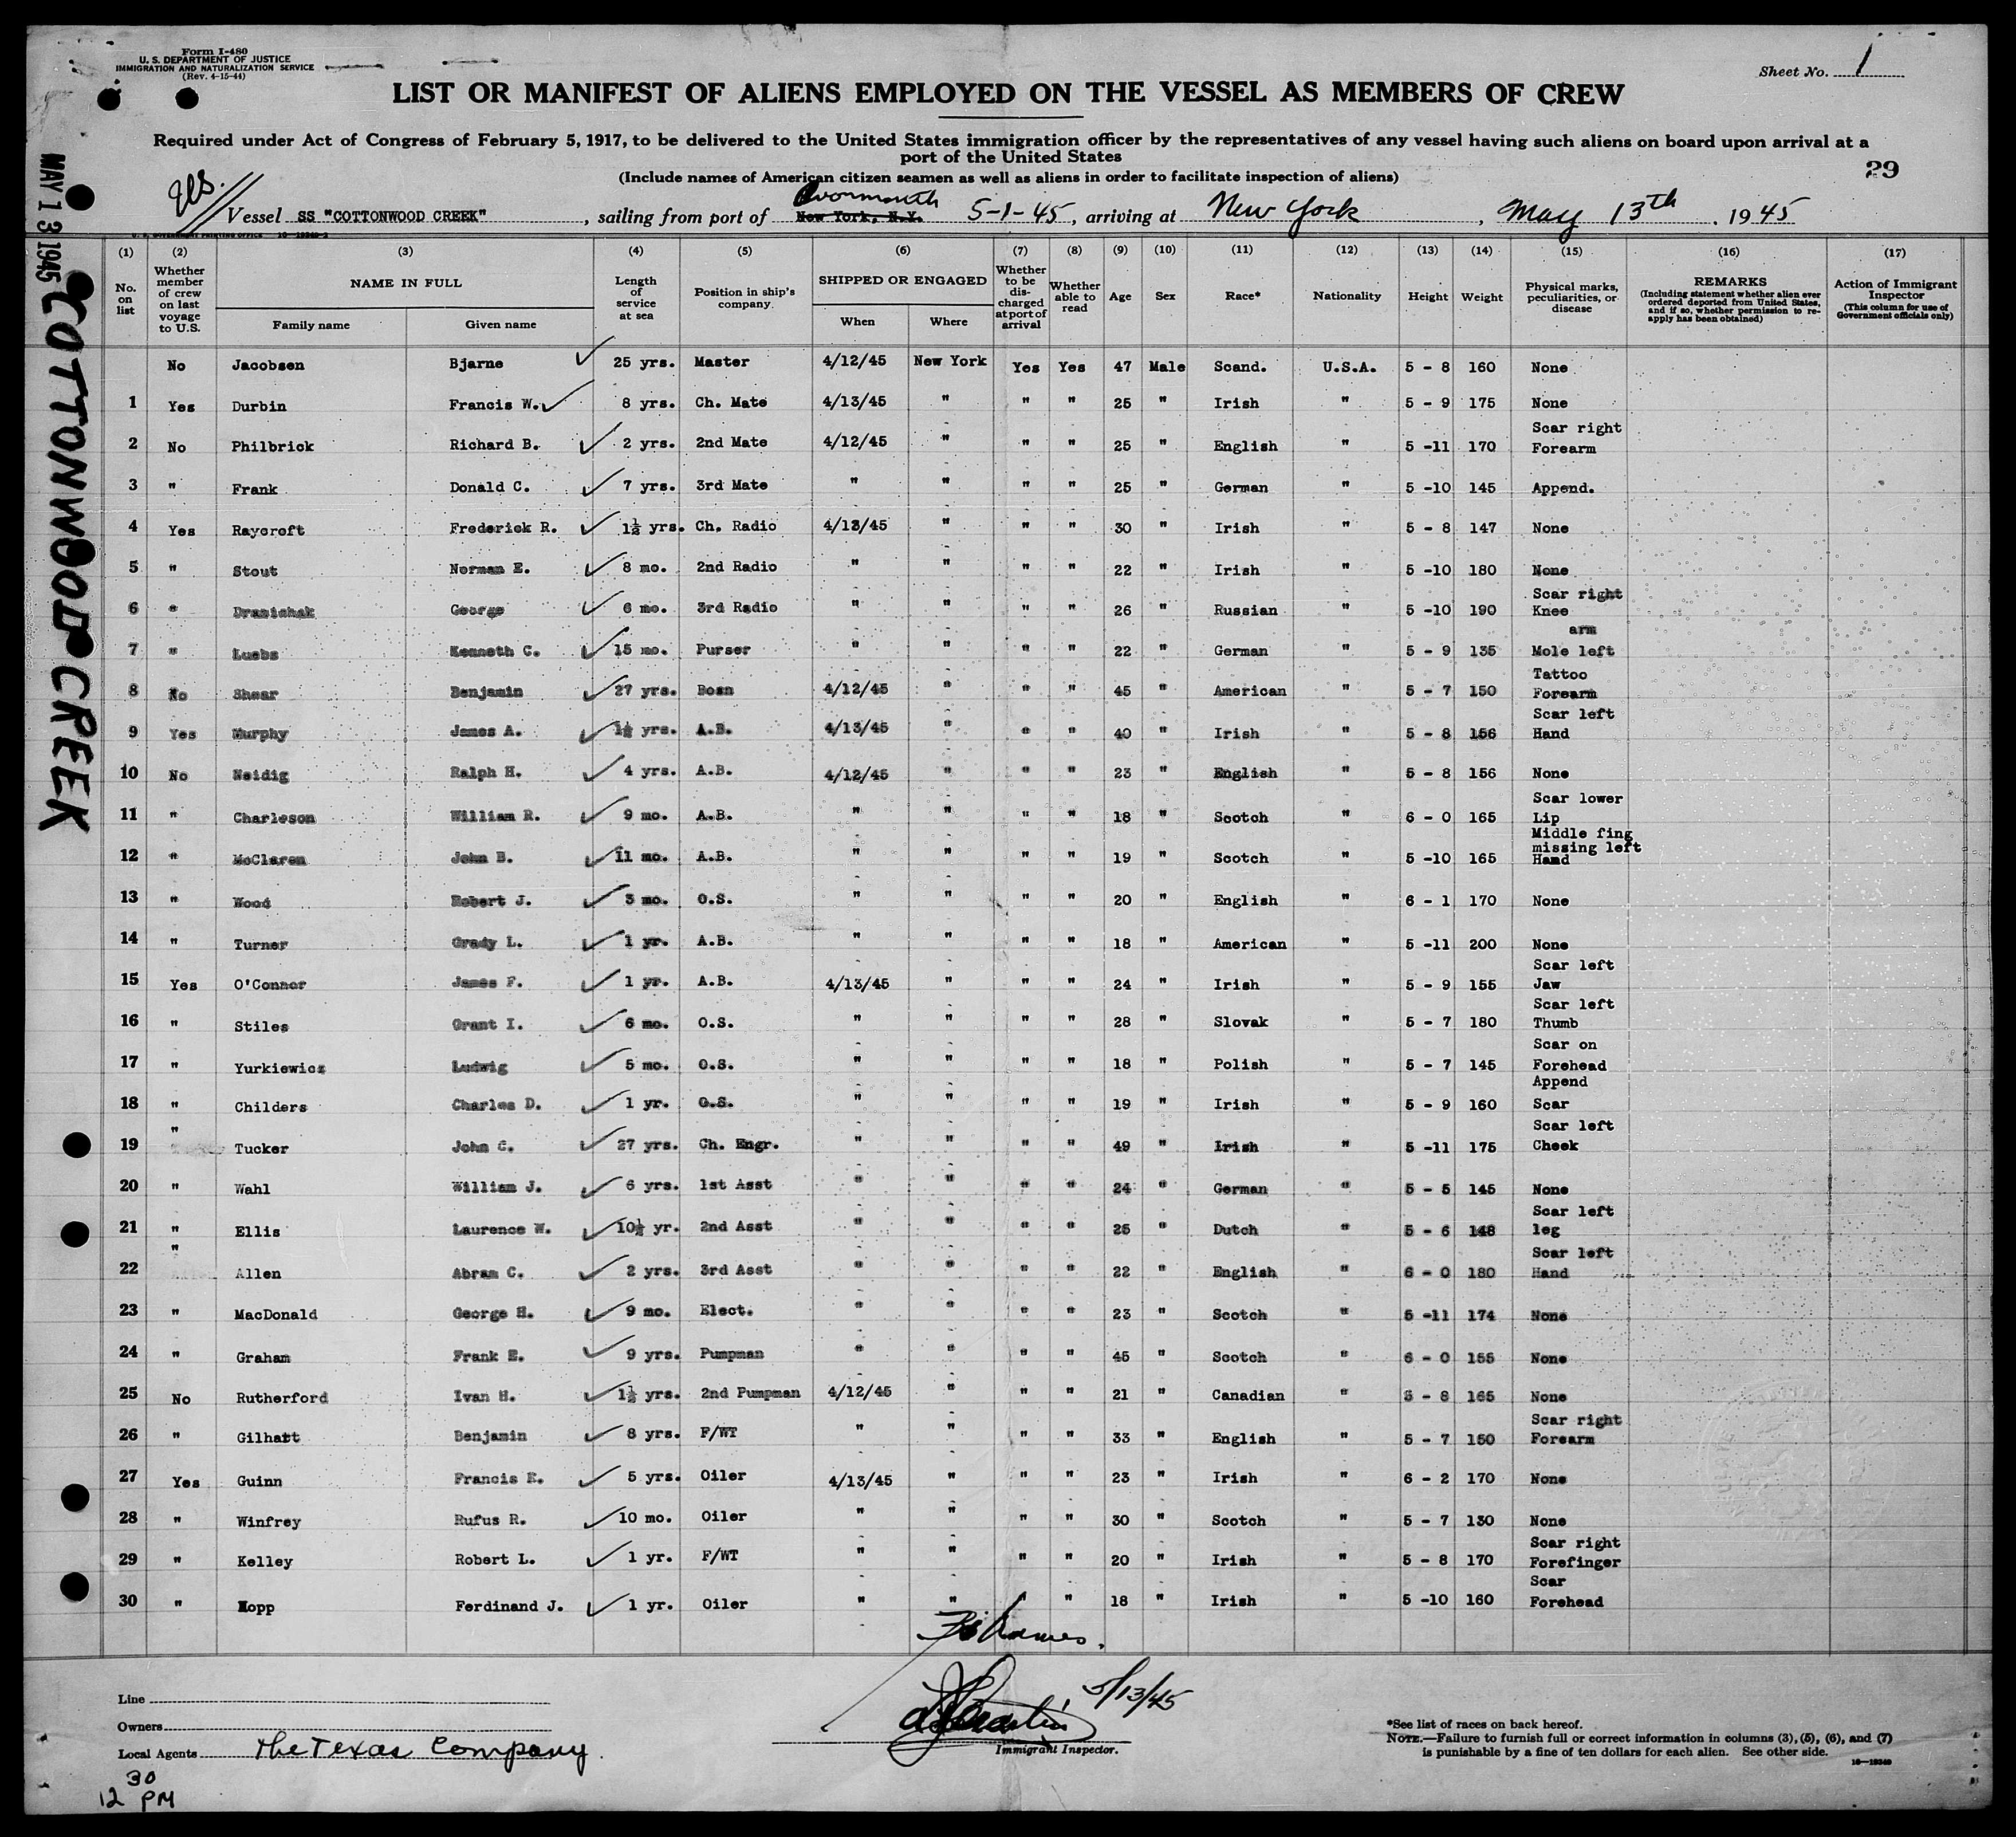 Form I-480
U. S. DEPARTMENT OF JUSTICE
IMMIGRATION AND NATURALIZATION SERVICE
(Rev. 4-15-44)
Sheet No. 1
LIST OR MANIFEST OF ALIENS EMPLOYED ON THE VESSEL AS MEMBERS OF CREW
Required under Act of Congress of February 5, 1917, to be delivered to the United States immigration officer by the representatives of any vessel having such aliens on board upon arrival at a
port of the United States
29
(Include names of American citizen seamen as well as aliens in order to facilitate inspection of aliens)
MAY 13 1945
COTTONWOOD CREEK
Avonmouth
Vessel SS "COTTONWOOD CREEK", sailing from port of New York, N.Y. 5-1-45, arriving at New York, May 13th, 1945
(1) (2) (3) (4) (5) (6) (7) (8) (9) (10) (11) (12) (13) (14) (15) (16) (17)
No. on list
Whether member of crew on last voyage to U.S.
NAME IN FULL
Family name
Given name
Length of service at sea
Position in ship's company
SHIPPED OR ENGAGED
When
Where
Whether to be discharged at port of arrival
Whether able to read
Age
Sex
Race*
Nationality
Height
Weight
Physical marks, peculiarities, or disease
REMARKS
(Including statement whether alien ever ordered deported from United States, and if so, whether permission to reapply has been obtained)
Action of Immigrant Inspector
(This column for use of Government officials only)
No Jacobsen Bjarne 25 yrs. Master 4/12/45 New York Yes Yes 47 Male Scand. U.S.A. 5 - 8 160 None
1 Yes Durbin Francis W. 8 yrs. Ch. Mate 4/13/45 " " " 25 " Irish " 5 - 9 175 None
2 No Philbrick Richard B. 2 yrs. 2nd Mate 4/12/45 " " " 25 " English " 5 -11 170 Scar right Forearm
3 " Frank Donald C. 7 yrs. 3rd Mate " " " " 25 " German " 5 -10 145 Append.
4 Yes Raycroft Frederick R. 1½ yrs. Ch. Radio 4/13/45 " " " 30 " Irish " 5 - 8 147 None
5 " Stout Norman E. 8 mo. 2nd Radio " " " " 22 " Irish " 5 -10 180 None
6 " Dranichak George 6 mo. 3rd Radio " " " " 26 " Russian " 5 -10 190 Scar right Knee
7 " Luebs Kenneth C. 15 mo. Purser " " " " 22 " German " 5 - 9 135 arm Mole left
8 No Shear Benjamin 27 yrs. Bosn 4/12/45 " " " 45 " American " 5 - 7 150 Tattoo Forearm
9 Yes Murphy James A. 1½ yrs. A.B. 4/13/45 " " " 40 " Irish " 5 - 8 156 Scar left Hand
10 No Neidig Ralph H. 4 yrs. A.B. 4/12/45 " " " 23 " English " 5 - 8 156 None
11 " Charleson William R. 9 mo. A.B. " " " " 18 " Scotch " 6 - 0 165 Scar lower Lip
12 " McClaren John B. 11 mo. A.B. " " " " 19 " Scotch " 5 -10 165 Middle fing missing left Hand
13 " Wood Robert J. 3 mo. O.S. " " " " 20 " English " 6 - 1 170 None
14 " Turner Grady L. 1 yr. A.B. " " " " 18 " American " 5 -11 200 None
15 Yes O'Connor James F. 1 yr. A.B. 4/13/45 " " " 24 " Irish " 5 - 9 155 Scar left Jaw
16 " Stiles Grant I. 6 mo. O.S. " " " " 28 " Slovak " 5 - 7 180 Scar left Thumb
17 " Yurkiewicz Ludwig 5 mo. O.S. " " " " 18 " Polish " 5 - 7 145 Scar on Forehead
18 " Childers Charles D. 1 yr. O.S. " " " " 19 " Irish " 5 - 9 160 Append Scar
19 " Tucker John C. 27 yrs. Ch. Engr. " " " " 49 " Irish " 5 -11 175 Scar left Cheek
20 " Wahl William J. 6 yrs. 1st Asst " " " " 24 " German " 5 - 5 145 None
21 " Ellis Laurence W. 10½ yr. 2nd Asst " " " " 25 " Dutch " 5 - 6 148 Scar left leg
22 " Allen Abram C. 2 yrs. 3rd Asst " " " " 22 " English " 6 - 0 180 Scar left Hand
23 " MacDonald George H. 9 mo. Elect. " " " " 23 " Scotch " 5 -11 174 None
24 " Graham Frank E. 9 yrs. Pumpman " " " " 45 " Scotch " 6 - 0 155 None
25 No Rutherford Ivan H. 1½ yrs. 2nd Pumpman 4/12/45 " " " 21 " Canadian " 5 - 8 165 None
26 " Gilhatt Benjamin 8 yrs. F/WT " " " " 33 " English " 5 - 7 150 Scar right Forearm
27 Yes Guinn Francis E. 5 yrs. Oiler 4/13/45 " " " 23 " Irish " 6 - 2 170 None
28 " Winfrey Rufus R. 10 mo. Oiler " " " " 30 " Scotch " 5 - 7 130 None
29 " Kelley Robert L. 1 yr. F/WT " " " " 20 " Irish " 5 - 8 170 Scar right Forefinger
30 " Kopp Ferdinand J. 1 yr. Oiler " " " " 18 " Irish " 5 -10 160 Scar Forehead
Line
Owners
Local Agents The Texas Company.
5/13/45
Immigrant Inspector.
*See list of races on back hereof.
NOTE.—Failure to furnish full or correct information in columns (3), (5), (6), and (7)
is punishable by a fine of ten dollars for each alien. See other side.
12 30 PM